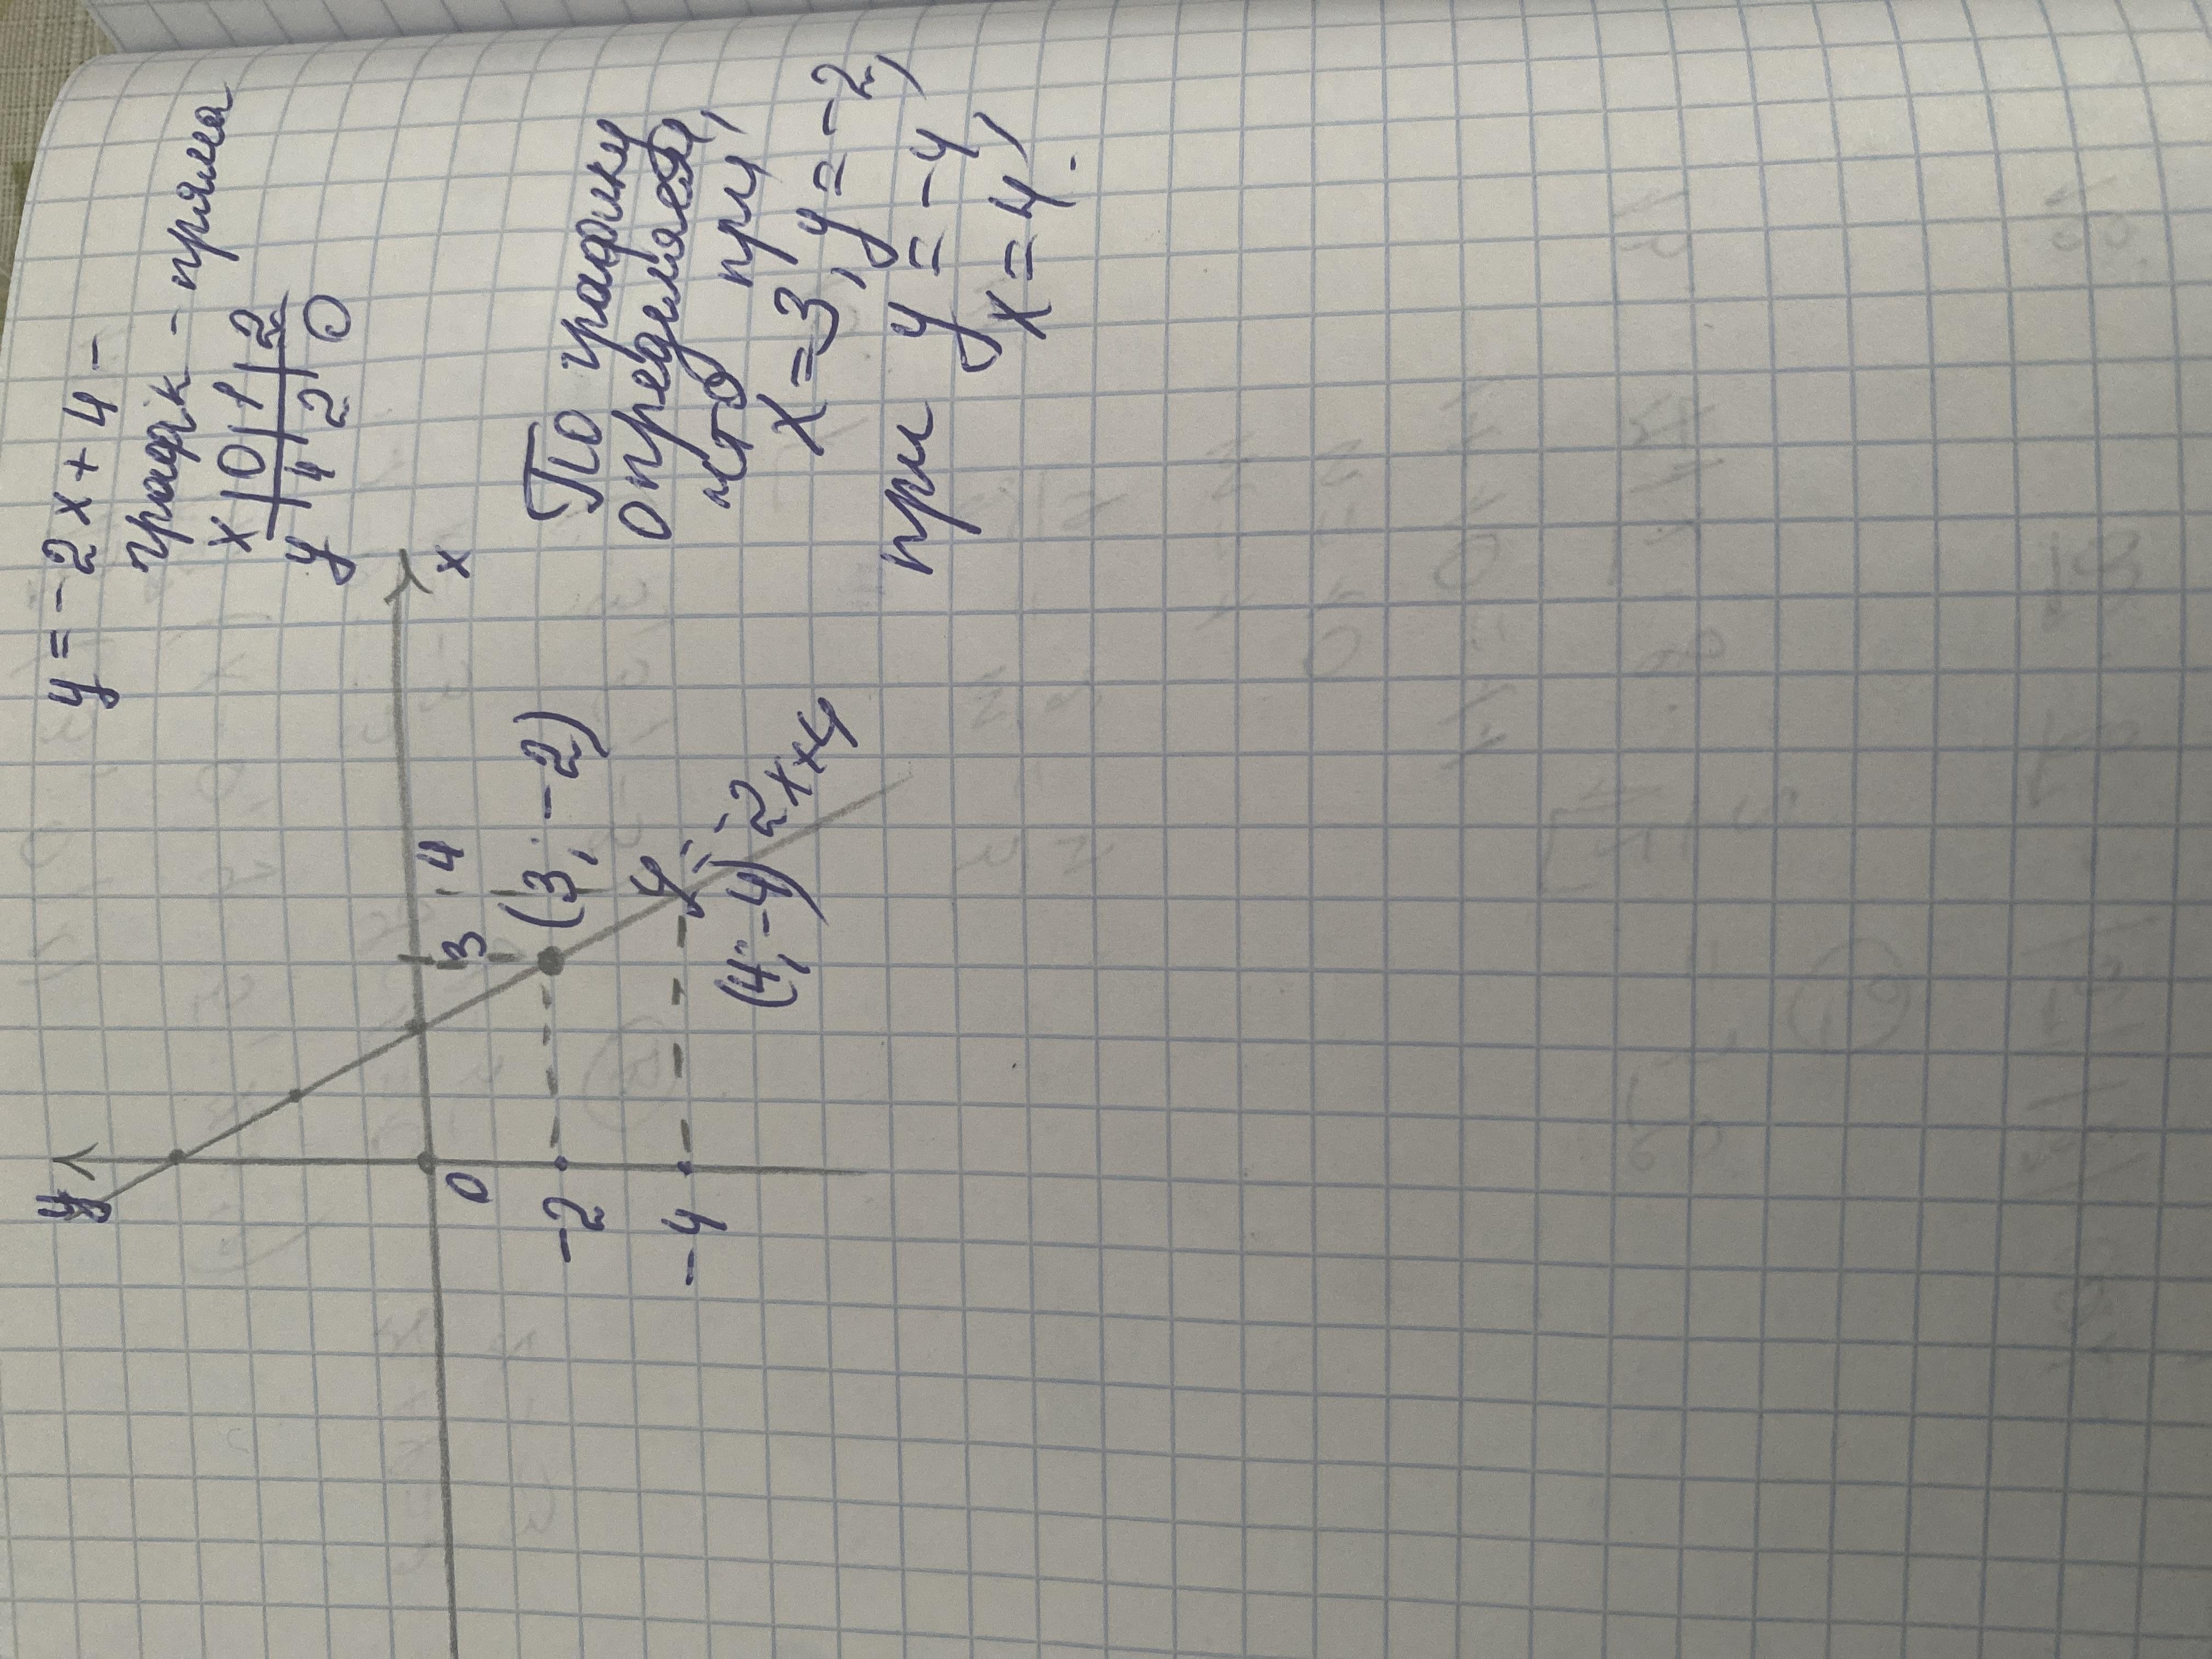 y = -2x + 4 -
график - пряма
x | 0 | 1 | 2
y | 4 | 2 | 0
y
x
0
3
4
-2
-4
(3; -2)
(4; -4)
y = -2x+4
По графику
определяем,
что при
x = 3, y = -2,
при y = -4
x = 4.